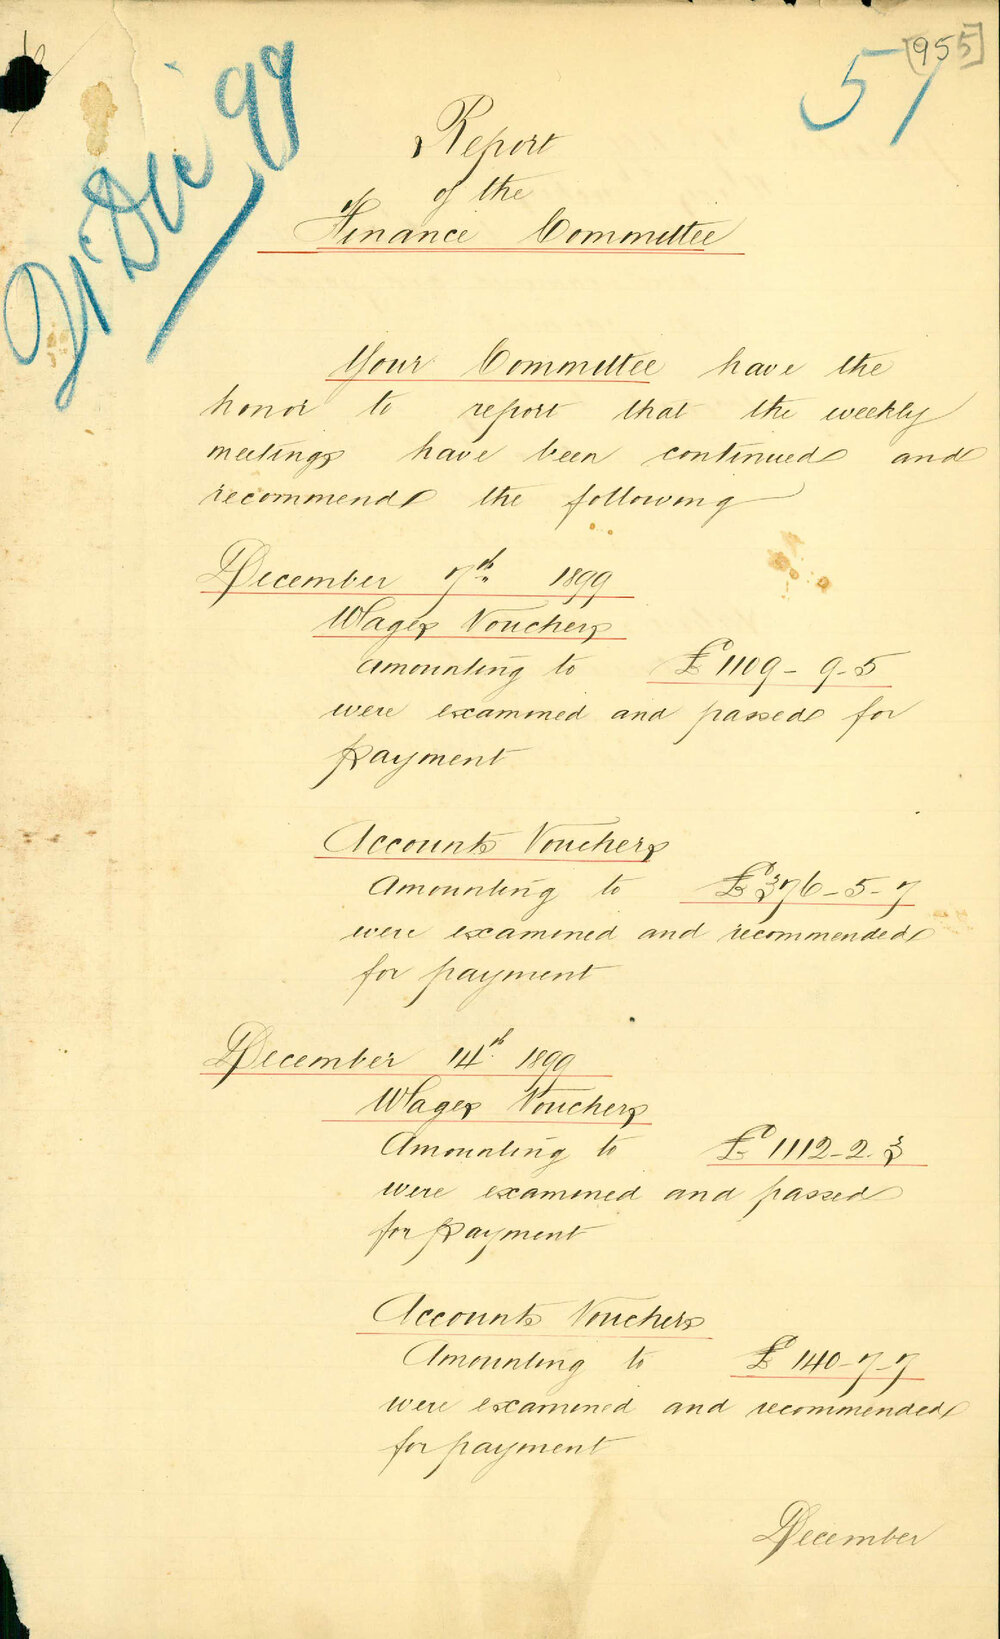 21 Dec 99
57
[955]
Report
of the
Finance Committee
Your Committee have the
honor to report that the weekly
meetings have been continued and
recommend the following
December 7th 1899
Wages Vouchers
Amounting to £1109-9-5
were examined and passed for
payment
Accounts Vouchers
Amounting to £376-5-7
were examined and recommended
for payment
December 14th 1899
Wages Vouchers
Amounting to £1112-2.3
were examined and passed
for payment
Accounts Vouchers
Amounting to £140-7-7
were examined and recommended
for payment
December